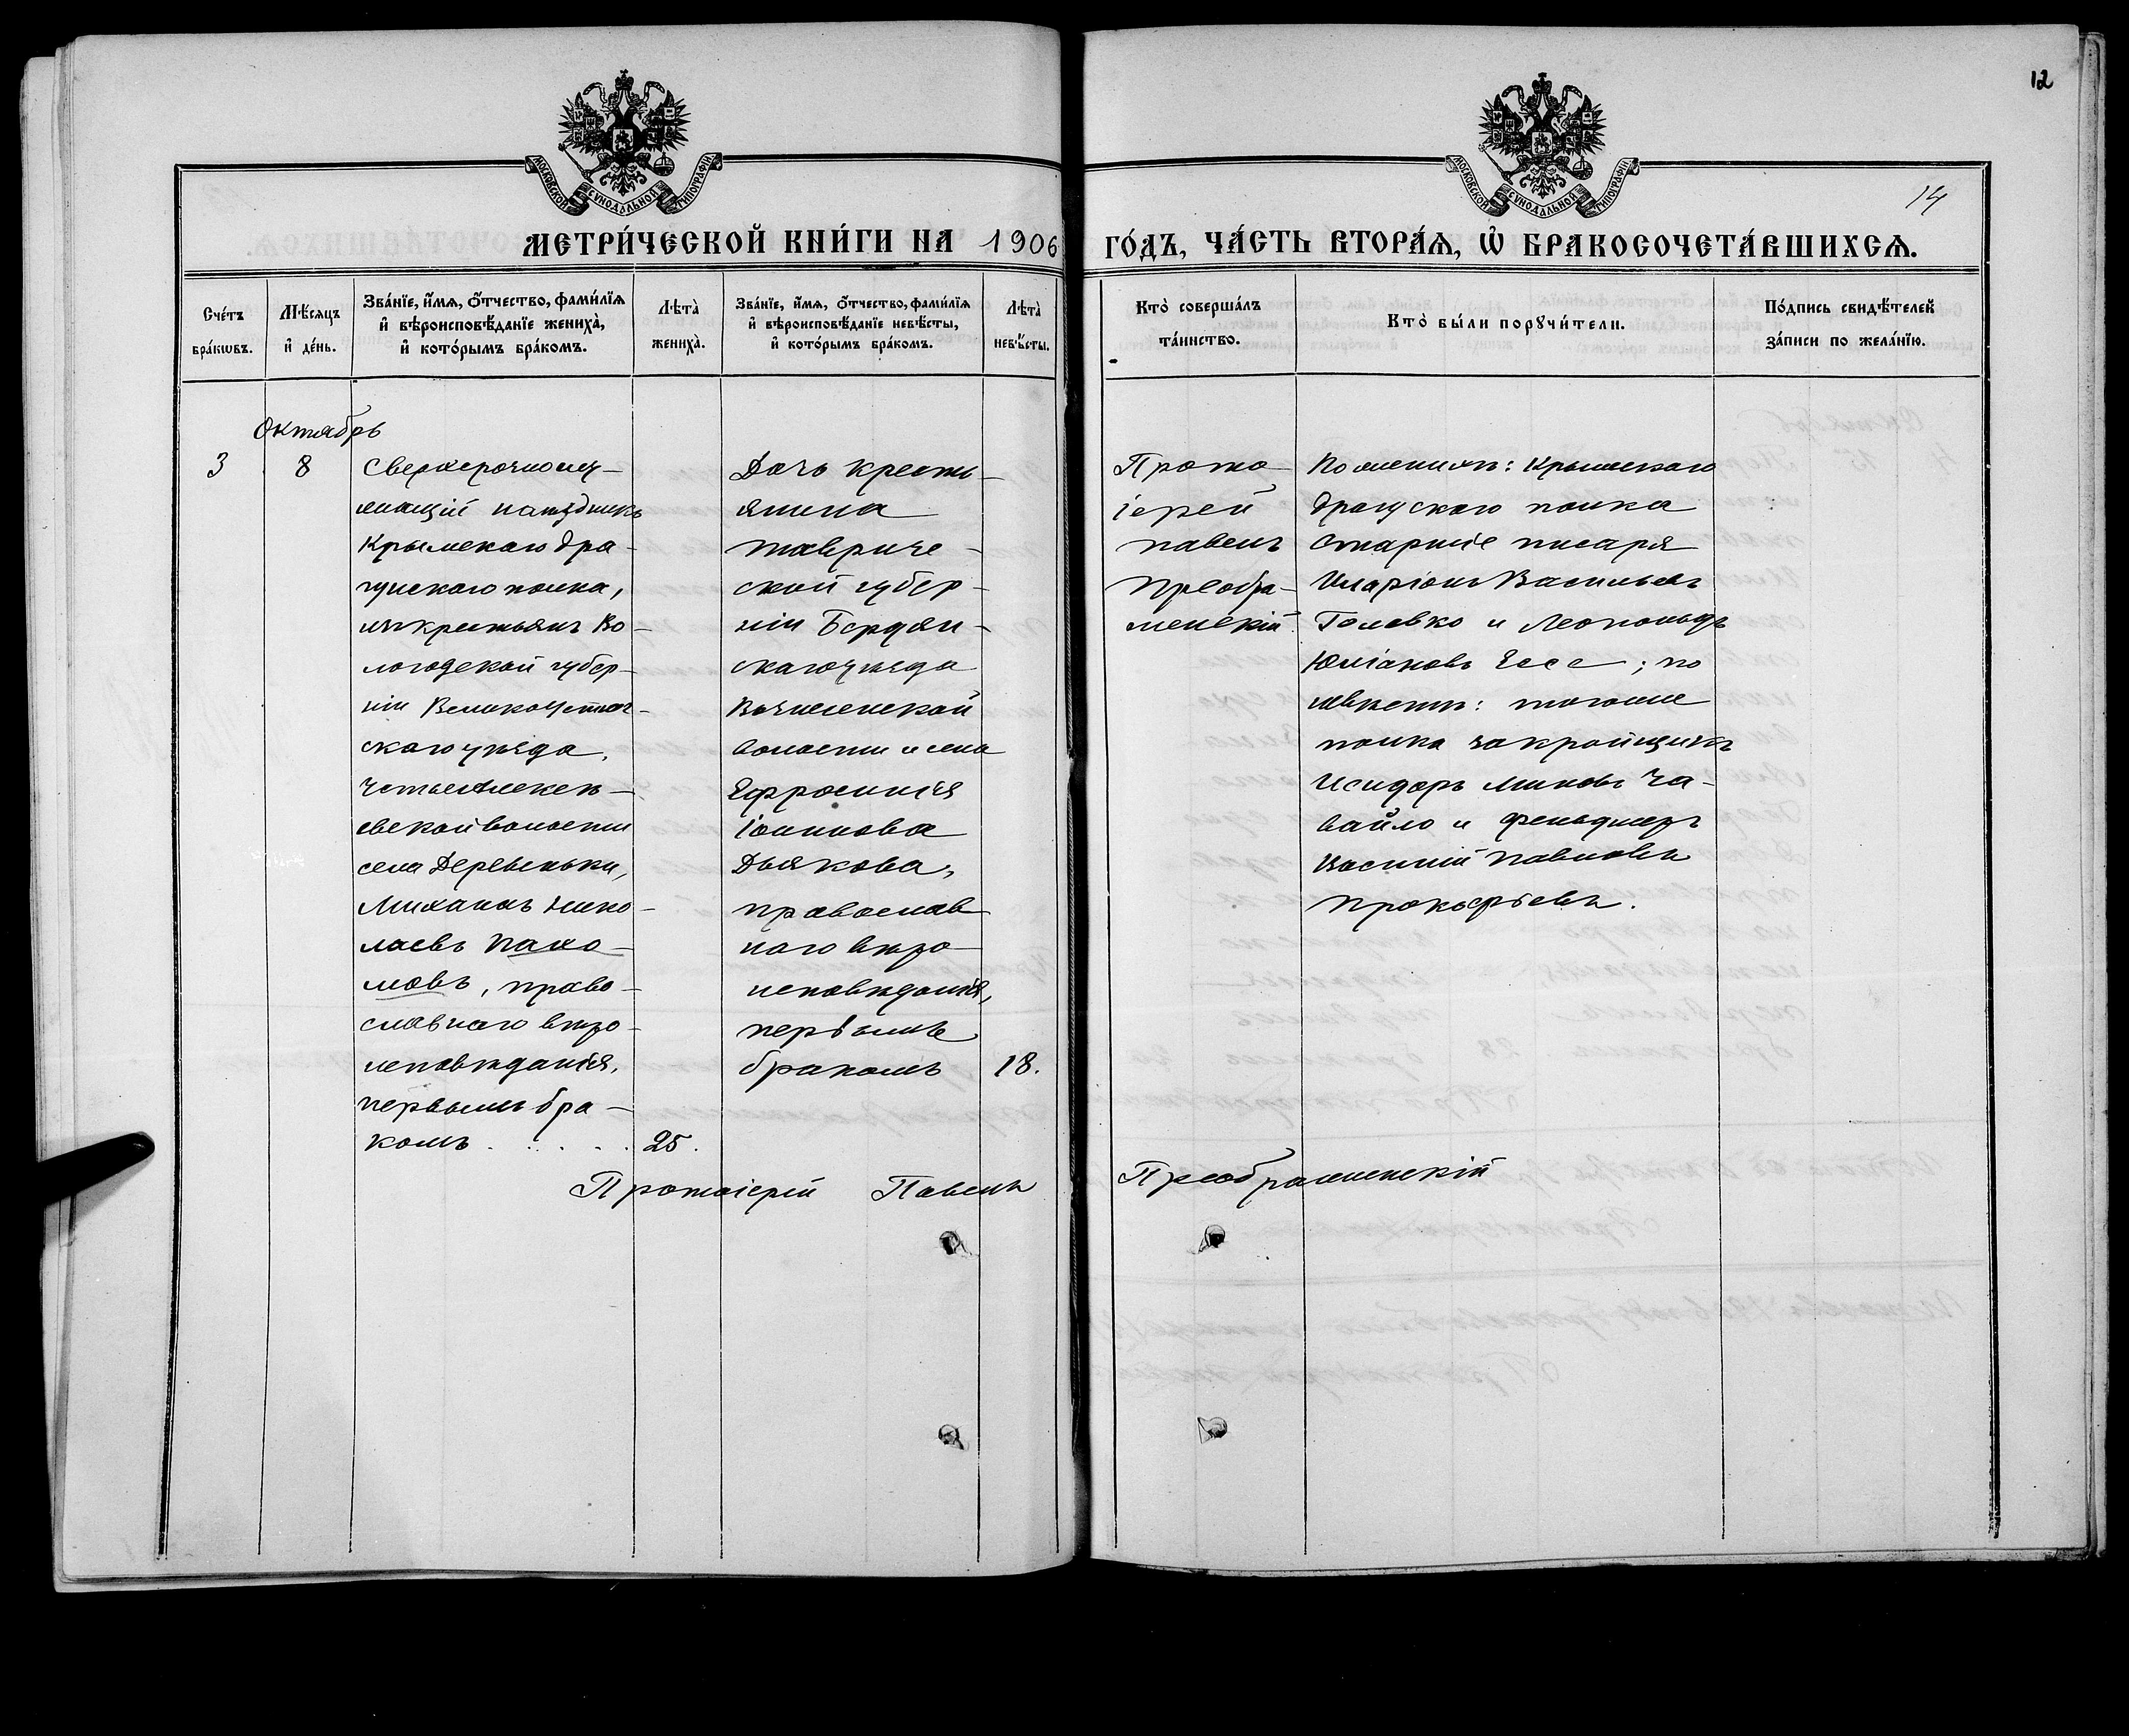 12
14
МОСКОВСКОЙ СУНОДАЛЬНОЙ ТИПОГРАФІИ
МОСКОВСКОЙ СУНОДАЛЬНОЙ ТИПОГРАФІИ
МЕТРИ́ЧЕСКОЙ КНИ́ГИ НА 1906
ГО́ДЪ, ЧА́СТЬ ВТОРА́Ѧ, Ѽ БРАКОСОЧЕТА́ВШИХСѦ.
Сче́тъ
бра́кѡвъ.
Мѣ́сяцъ
и҆ де́нь.
Зва́нїе, и҆́мѧ, о҆́тчество, фами́лїѧ
и҆ вѣроисповѣ́данїе жениха̀,
и҆ кото́рымъ бра́комъ.
Лѣта̀
жениха̀.
Зва́нїе, и҆́мѧ, о҆́тчество, фами́лїѧ
и҆ вѣроисповѣ́данїе невѣ́сты,
и҆ кото́рымъ бра́комъ.
Лѣта̀
невѣ́сты.
Кто̀ соверша́лъ
та́инство.
Кто̀ бы́ли порꙋчи́тели.
По́дпись свидѣ́телей
за́писи по жела́нїю.
Октябрь
3
8
Сверхсрочнослу-
жащій наѣздникъ
Крымскаго дра-
гунскаго полка,
изъ крестьянъ Во-
логодской губер-
ніи Великоустюг-
скаго уѣзда,
Устьеалексѣ-
евской волости
села Деревеньки,
Михаилъ Нико-
лаевъ Пахо-
мовъ, право-
славнаго вѣро-
исповѣданія,
первымъ бра-
комъ . . . . .
25.
Дочь кресть-
янина
Тавриче-
ской губер-
ніи Бердян-
скаго уѣзда
волости и села
Ефросинія
Іоаннова
Дьякова,
православ-
наго вѣро-
исповѣданія,
первымъ
бракомъ
18.
Прото-
іерей
Павелъ
Преобра-
женскій
По женихѣ: Крымскаго
драгунскаго полка
старшіе писаря
Иларіонъ Васильевъ
Головко и Леопольдъ
Юліановъ Ессе; по
невѣстѣ: того же
полка закройщикъ
Исидоръ Миновъ Ча-
вайло и фельдшеръ
Василій Павловъ
Прокофьевъ.
Протоіерей Павелъ
Преображенскій